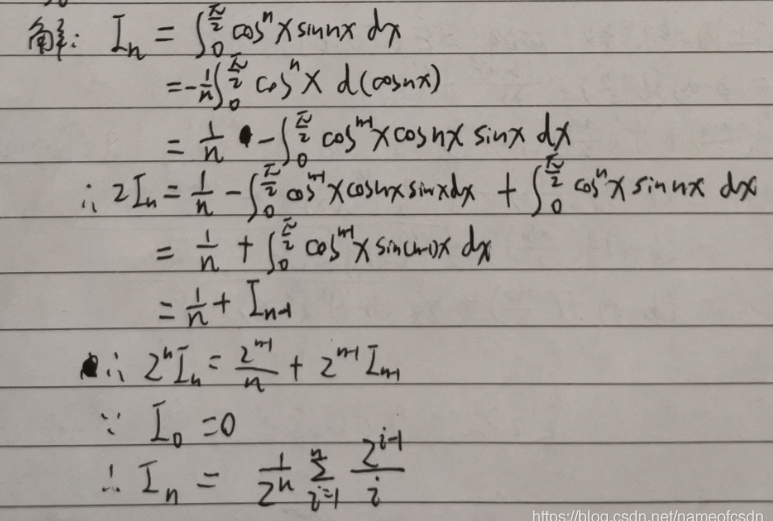 解: Iₙ = ∫₀^(π/2) cosⁿx sin nx dx
= -1/n ∫₀^(π/2) cosⁿx d(cos nx)
= 1/n - ∫₀^(π/2) cosⁿ⁻¹x cos nx sin x dx
∴ 2Iₙ = 1/n - ∫₀^(π/2) cosⁿ⁻¹x cos nx sin x dx + ∫₀^(π/2) cosⁿx sin nx dx
= 1/n + ∫₀^(π/2) cosⁿ⁻¹x sin(n-1)x dx
= 1/n + Iₙ₋₁
∴ 2ⁿIₙ = 2ⁿ⁻¹/n + 2ⁿ⁻¹Iₙ₋₁
∵ I₀ = 0
∴ Iₙ = 1/2ⁿ ∑ᵢ₌₁ⁿ 2ⁱ⁻¹/i
https://blog.csdn.net/nameofcsdn